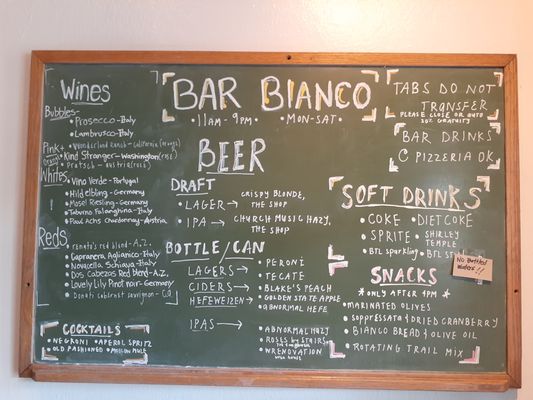 BAR BIANCO
•11AM-9PM• •MON-SAT•
TABS DO NOT
TRANSFER
PLEASE CLOSE OR AUTO
20% GRATUITY
BAR DRINKS
@ PIZZERIA OK
Wines
Bubbles-
•Prosecco-Italy
•Lambrusco-Italy
Pink+
Orange
•Wonderland Ranch-California (orange)
•Kind Stranger-Washington (rosé)
•Pratsch-Austria (rosé)
Whites
•Vino Verde-Portugal
•Hild elbling-Germany
•Mosel Riesling-Germany
•Taburno Falanghina-Italy
•Paul Achs Chardonnay-Austria
Reds
•renato's red blend-A.Z.
•Capranera Aglianico-Italy
•Novacella Schiava-Italy
•Dos Cabezas Red blend-A.Z.
•Lovely Lily Pinot noir-Germany
•Donati cabernet sauvignon-CA
COCKTAILS
•NEGRONI •APEROL SPRITZ
•OLD FASHIONED •MOSCOW MULE
BEER
DRAFT
•LAGER→ CRISPY BLONDE,
THE SHOP
•IPA→ CHURCH MUSIC HAZY,
THE SHOP
BOTTLE/CAN
LAGERS→
•PERONI
•TECATE
CIDERS→
•BLAKE'S PEACH
•GOLDEN STATE APPLE
HEFEWEIZEN→ •ABNORMAL HEFE
IPAS→
•ABNORMAL HAZY
•ROSES BY STAIRS
•WRENOVATION
SOFT DRINKS
•COKE •DIET COKE
•SPRITE •SHIRLEY
TEMPLE
•BTL sparkling •BTL
No Bottled
Water!!
SNACKS
*ONLY AFTER 4PM*
•MARINATED OLIVES
•soppressata+DRIED CRANBERRY
•BIANCO BREAD+OLIVE OIL
•ROTATING TRAIL MIX